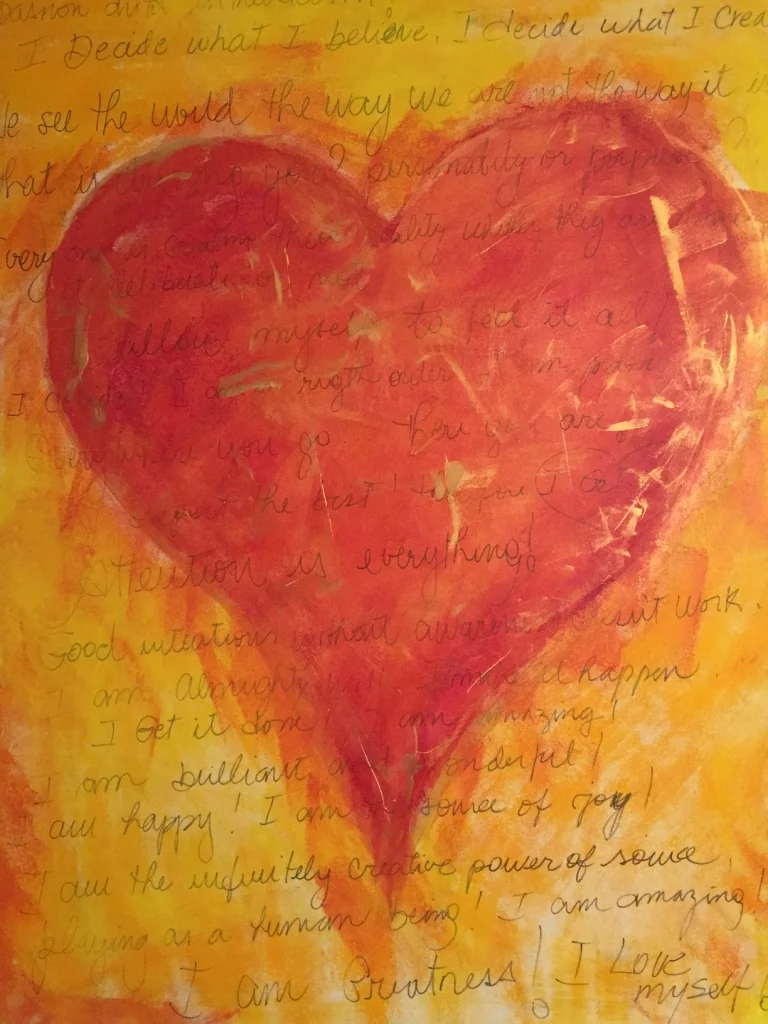 I Decide what I believe. I decide what I Crea
e see the world the way we are not the way it is
hat is driving you? personality or purpose?
very one is creating their reality whether they are
deliberate or not
I allow myself to feel it all!
I I am in right order I am
Everywhere you go there you are,
expect the best! I get
Attention is everything!
Good intentions without awareness doesn't work.
I am Almighty happen
I Get it done! I am amazing!
I am brilliant and wonderful!
I am happy! I am the source of joy!
I am the infinitely creative power of source
playing as a human being! I am amazing!
I am Greatness! I Love
myself!